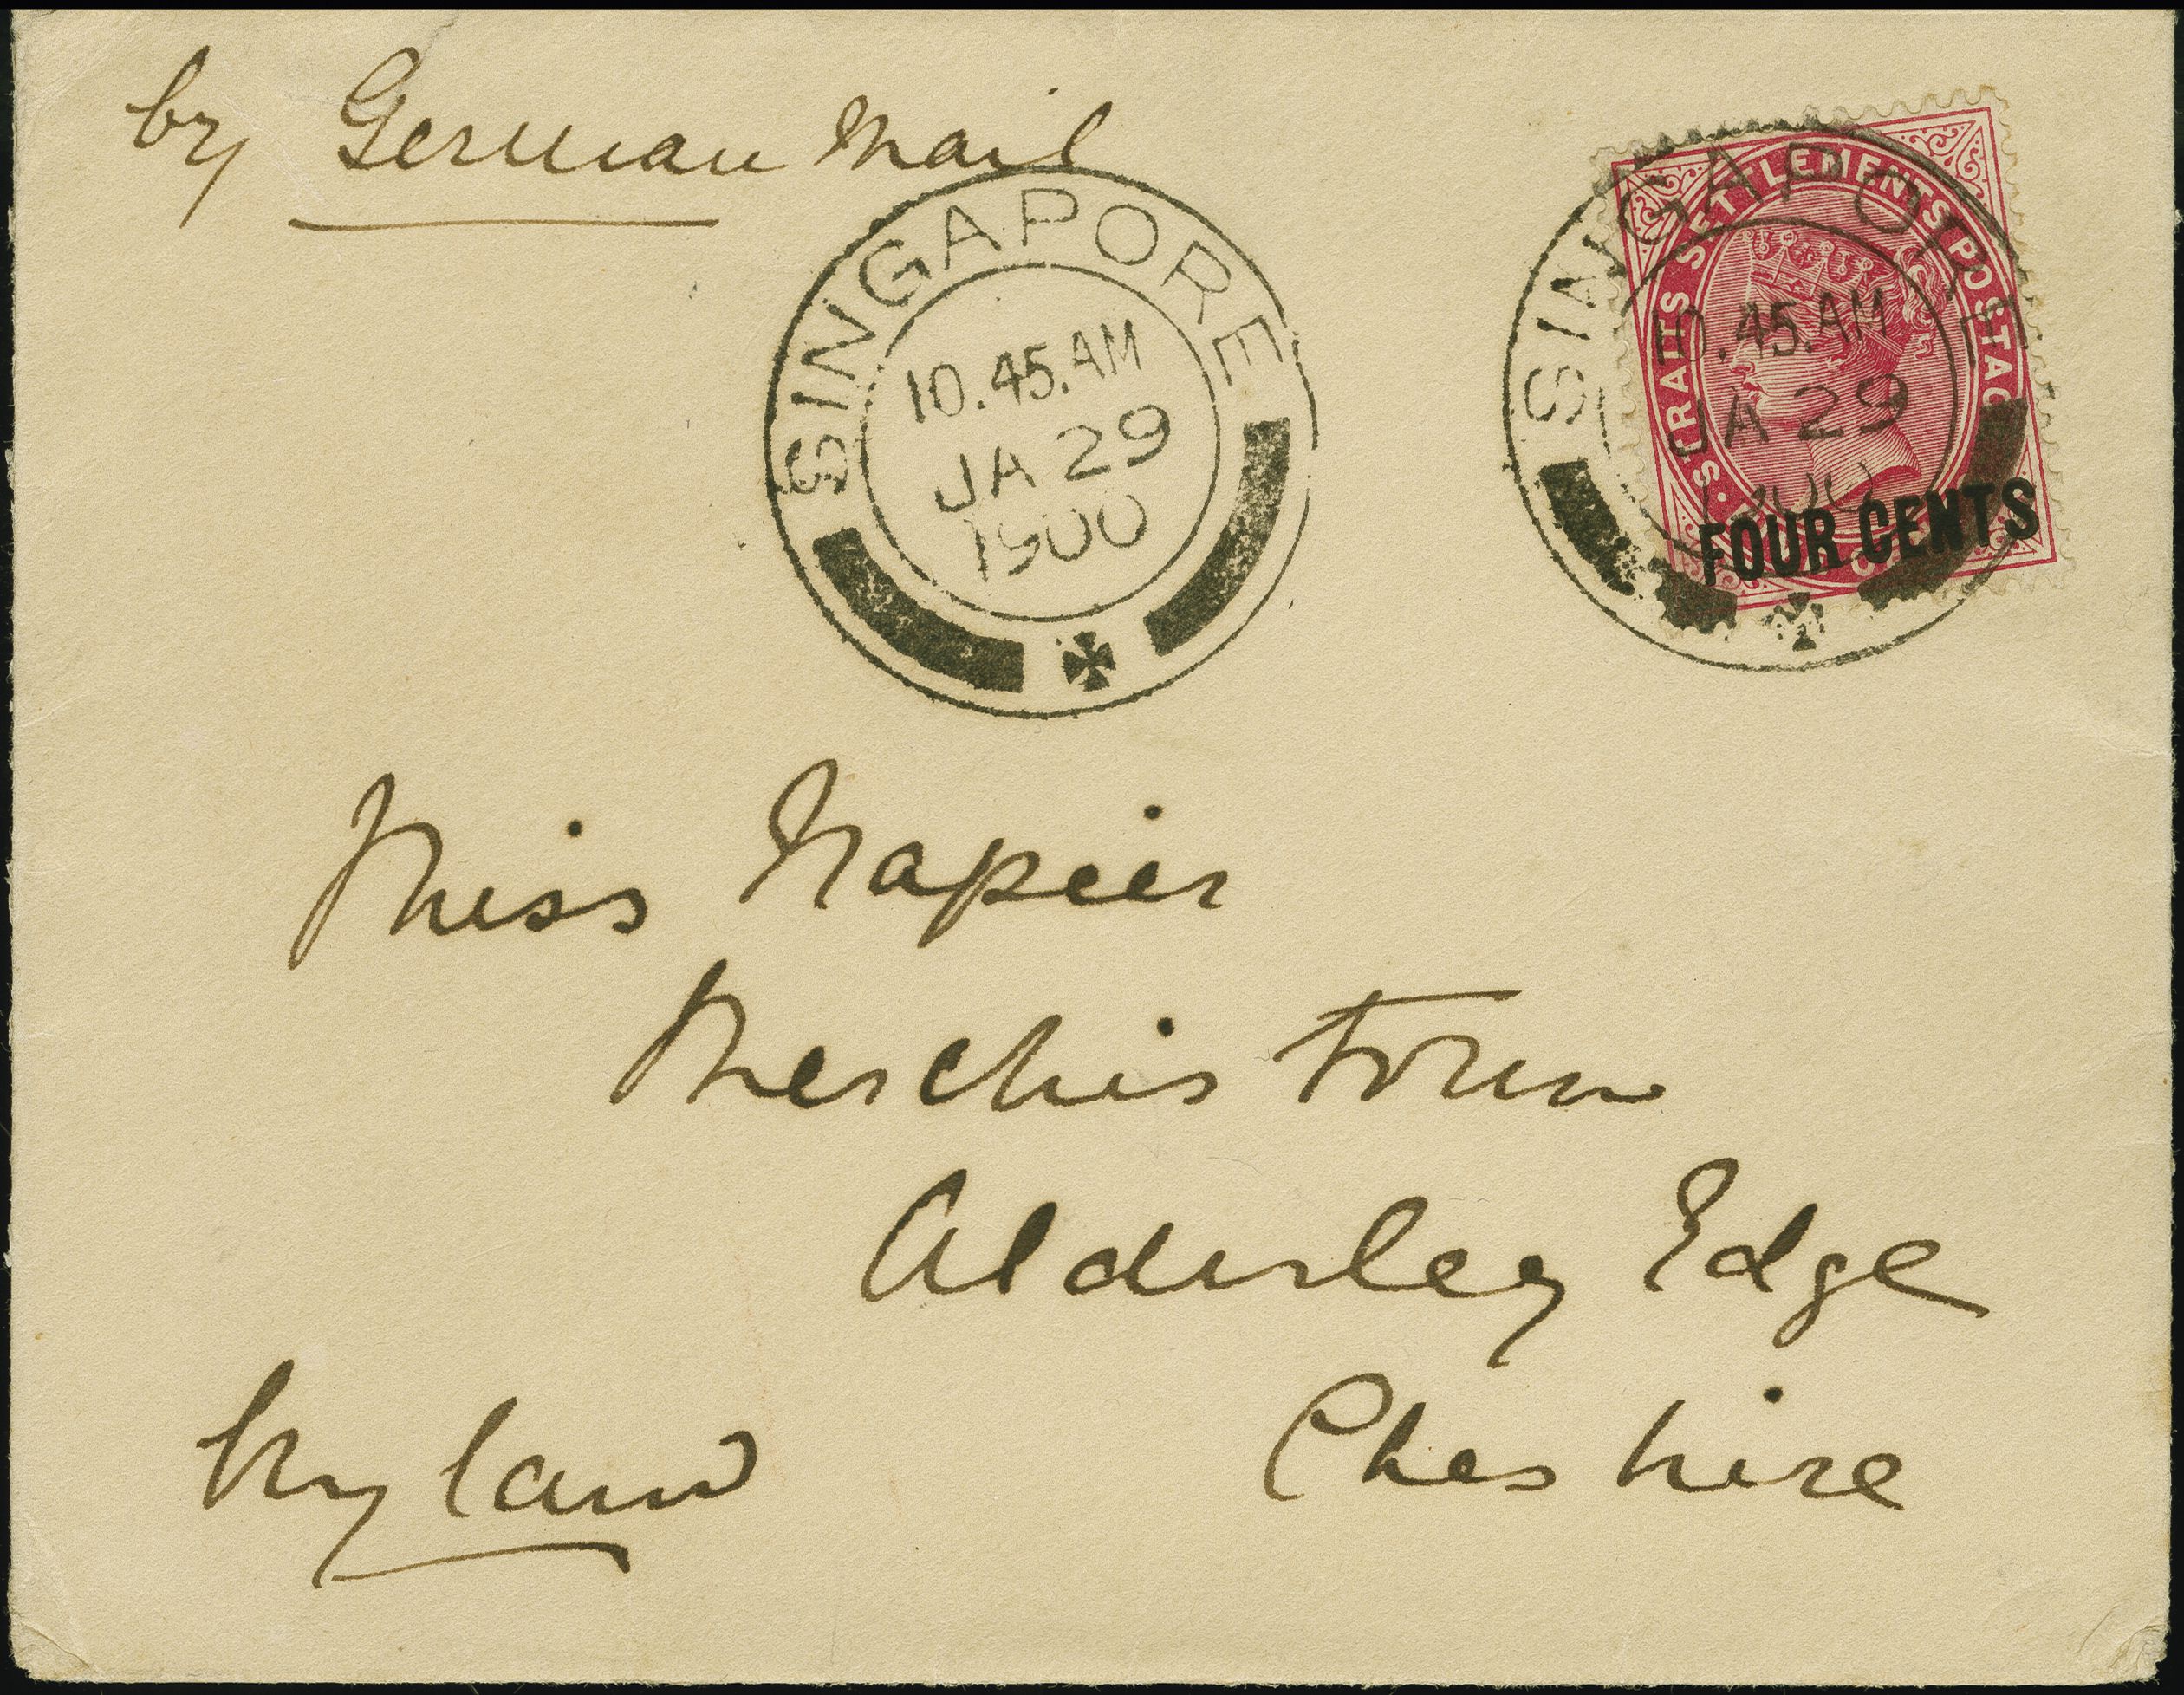 by German Mail
SINGAPORE
10.45.AM
JA 29
1900
STRAITS SETTLEMENTS POSTAGE
SINGAPORE
10.45.AM
JA 29
1900
FOUR CENTS
Miss Napier
Merchistoun
Alderley Edge
Cheshire
England